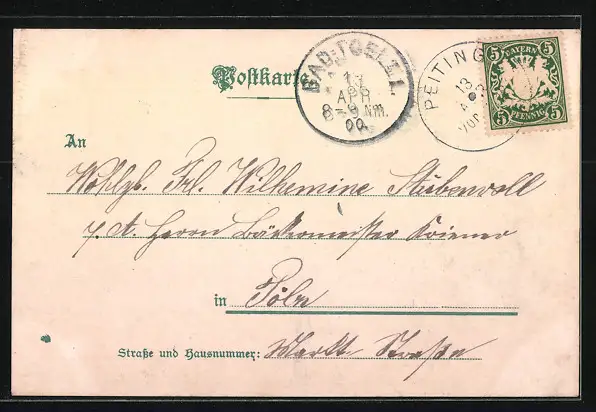 Postkarte
BAD-TOELZ I.
13
APR
8-9 Nm.
00.
PEITING
13
BAYERN
5 5
5 5
PFENNIG
An
Wohlgb. Frl. Wilhemine Stubenvoll
z. A. Herrn Bäckermeister Kriener
in Tölz
Straße und Hausnummer: Markt-Straße